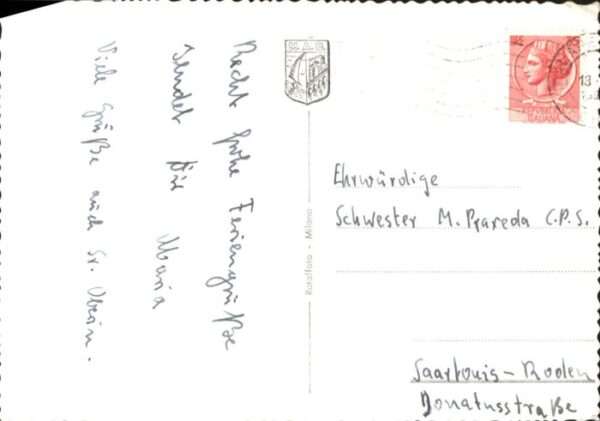 Recht frohe Feriengrüße
sendet Dir
Maria
Viele Grüße auch Sr. Oberin.
Rotalfoto - Milano
Ehrwürdige
Schwester M. Prareda C.P.S.
Saarlouis-Roden
Donatusstraße
ITALIANA
13